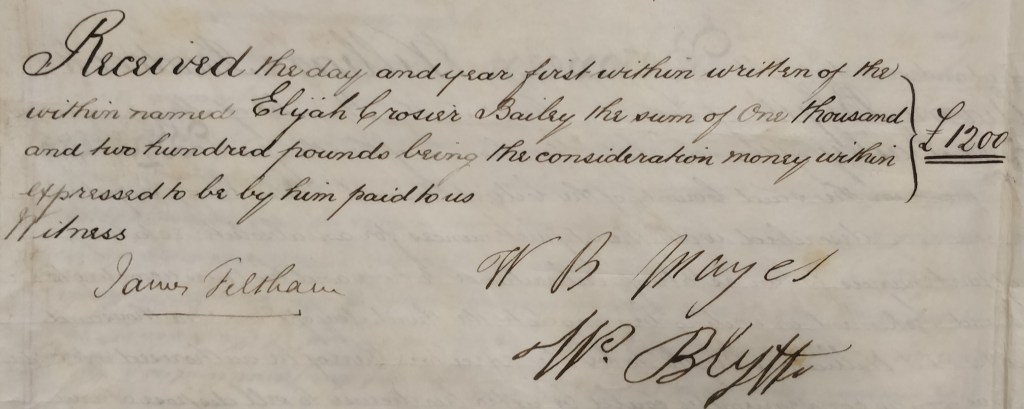 Received the day and year first within written of the
within named Elijah Crosier Bailey the sum of One thousand
and two hundred pounds being the consideration money within
expressed to be by him paid to us
£1200
Witness
James Feltham
W B Mayes
Wm. Blyth